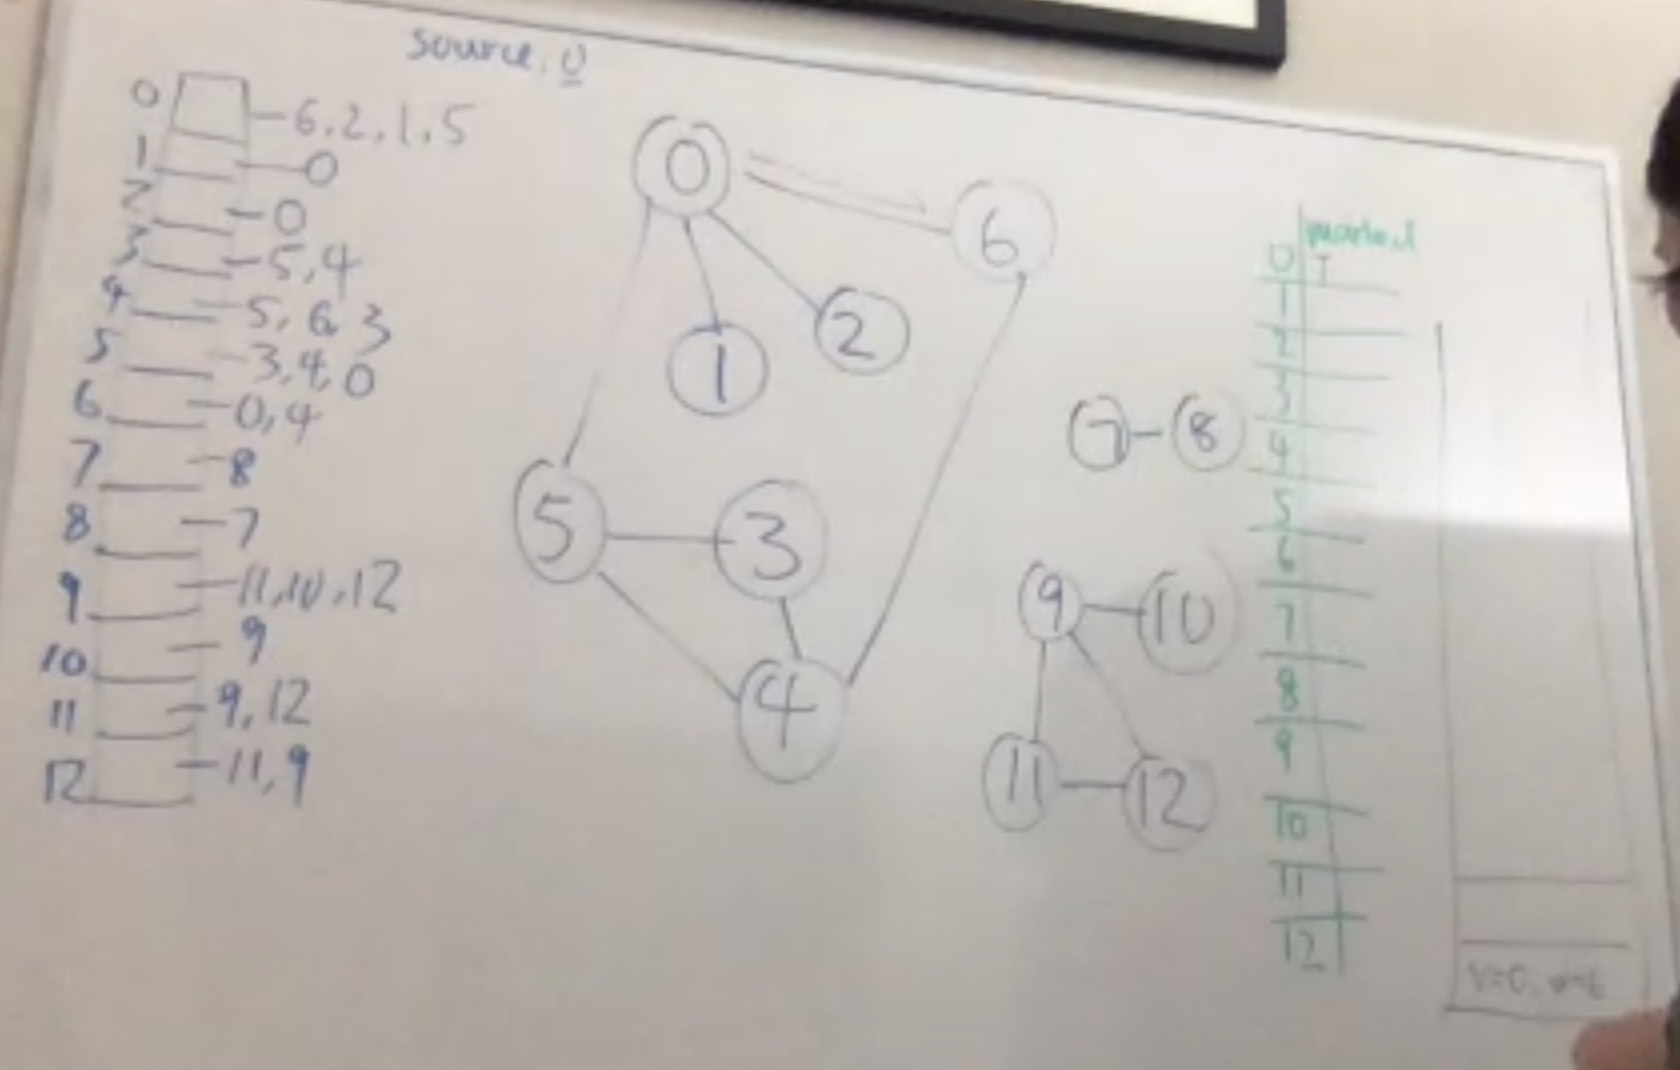 source. 0
0 6, 2, 1, 5
1 0
2 0
3 5, 4
4 5, 6, 3
5 3, 4, 0
6 0, 4
7 8
8 7
9 11, 10, 12
10 9
11 9, 12
12 11, 9
0
6
1
2
5
3
4
7 8
9 10
11 12
marked
0 T
1
2
3
4
5
6
7
8
9
10
11
12
v=0, w=6